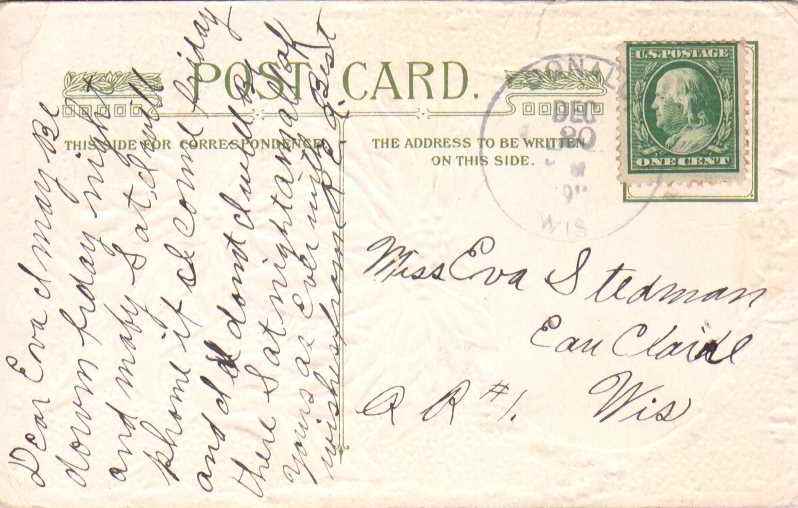 POST CARD.
THIS SIDE FOR CORRESPONDENCE
THE ADDRESS TO BE WRITTEN
ON THIS SIDE.
U.S. POSTAGE
ONE CENT
DEC
20
WIS
Dear Eva I may be
down friday night
and maby Sat, I will
phone if I come friday
and if I dont I will be
there Sat night
yours as ever with
wishes from best
Miss Eva Stedman
Eau Claire
R R #1. Wis